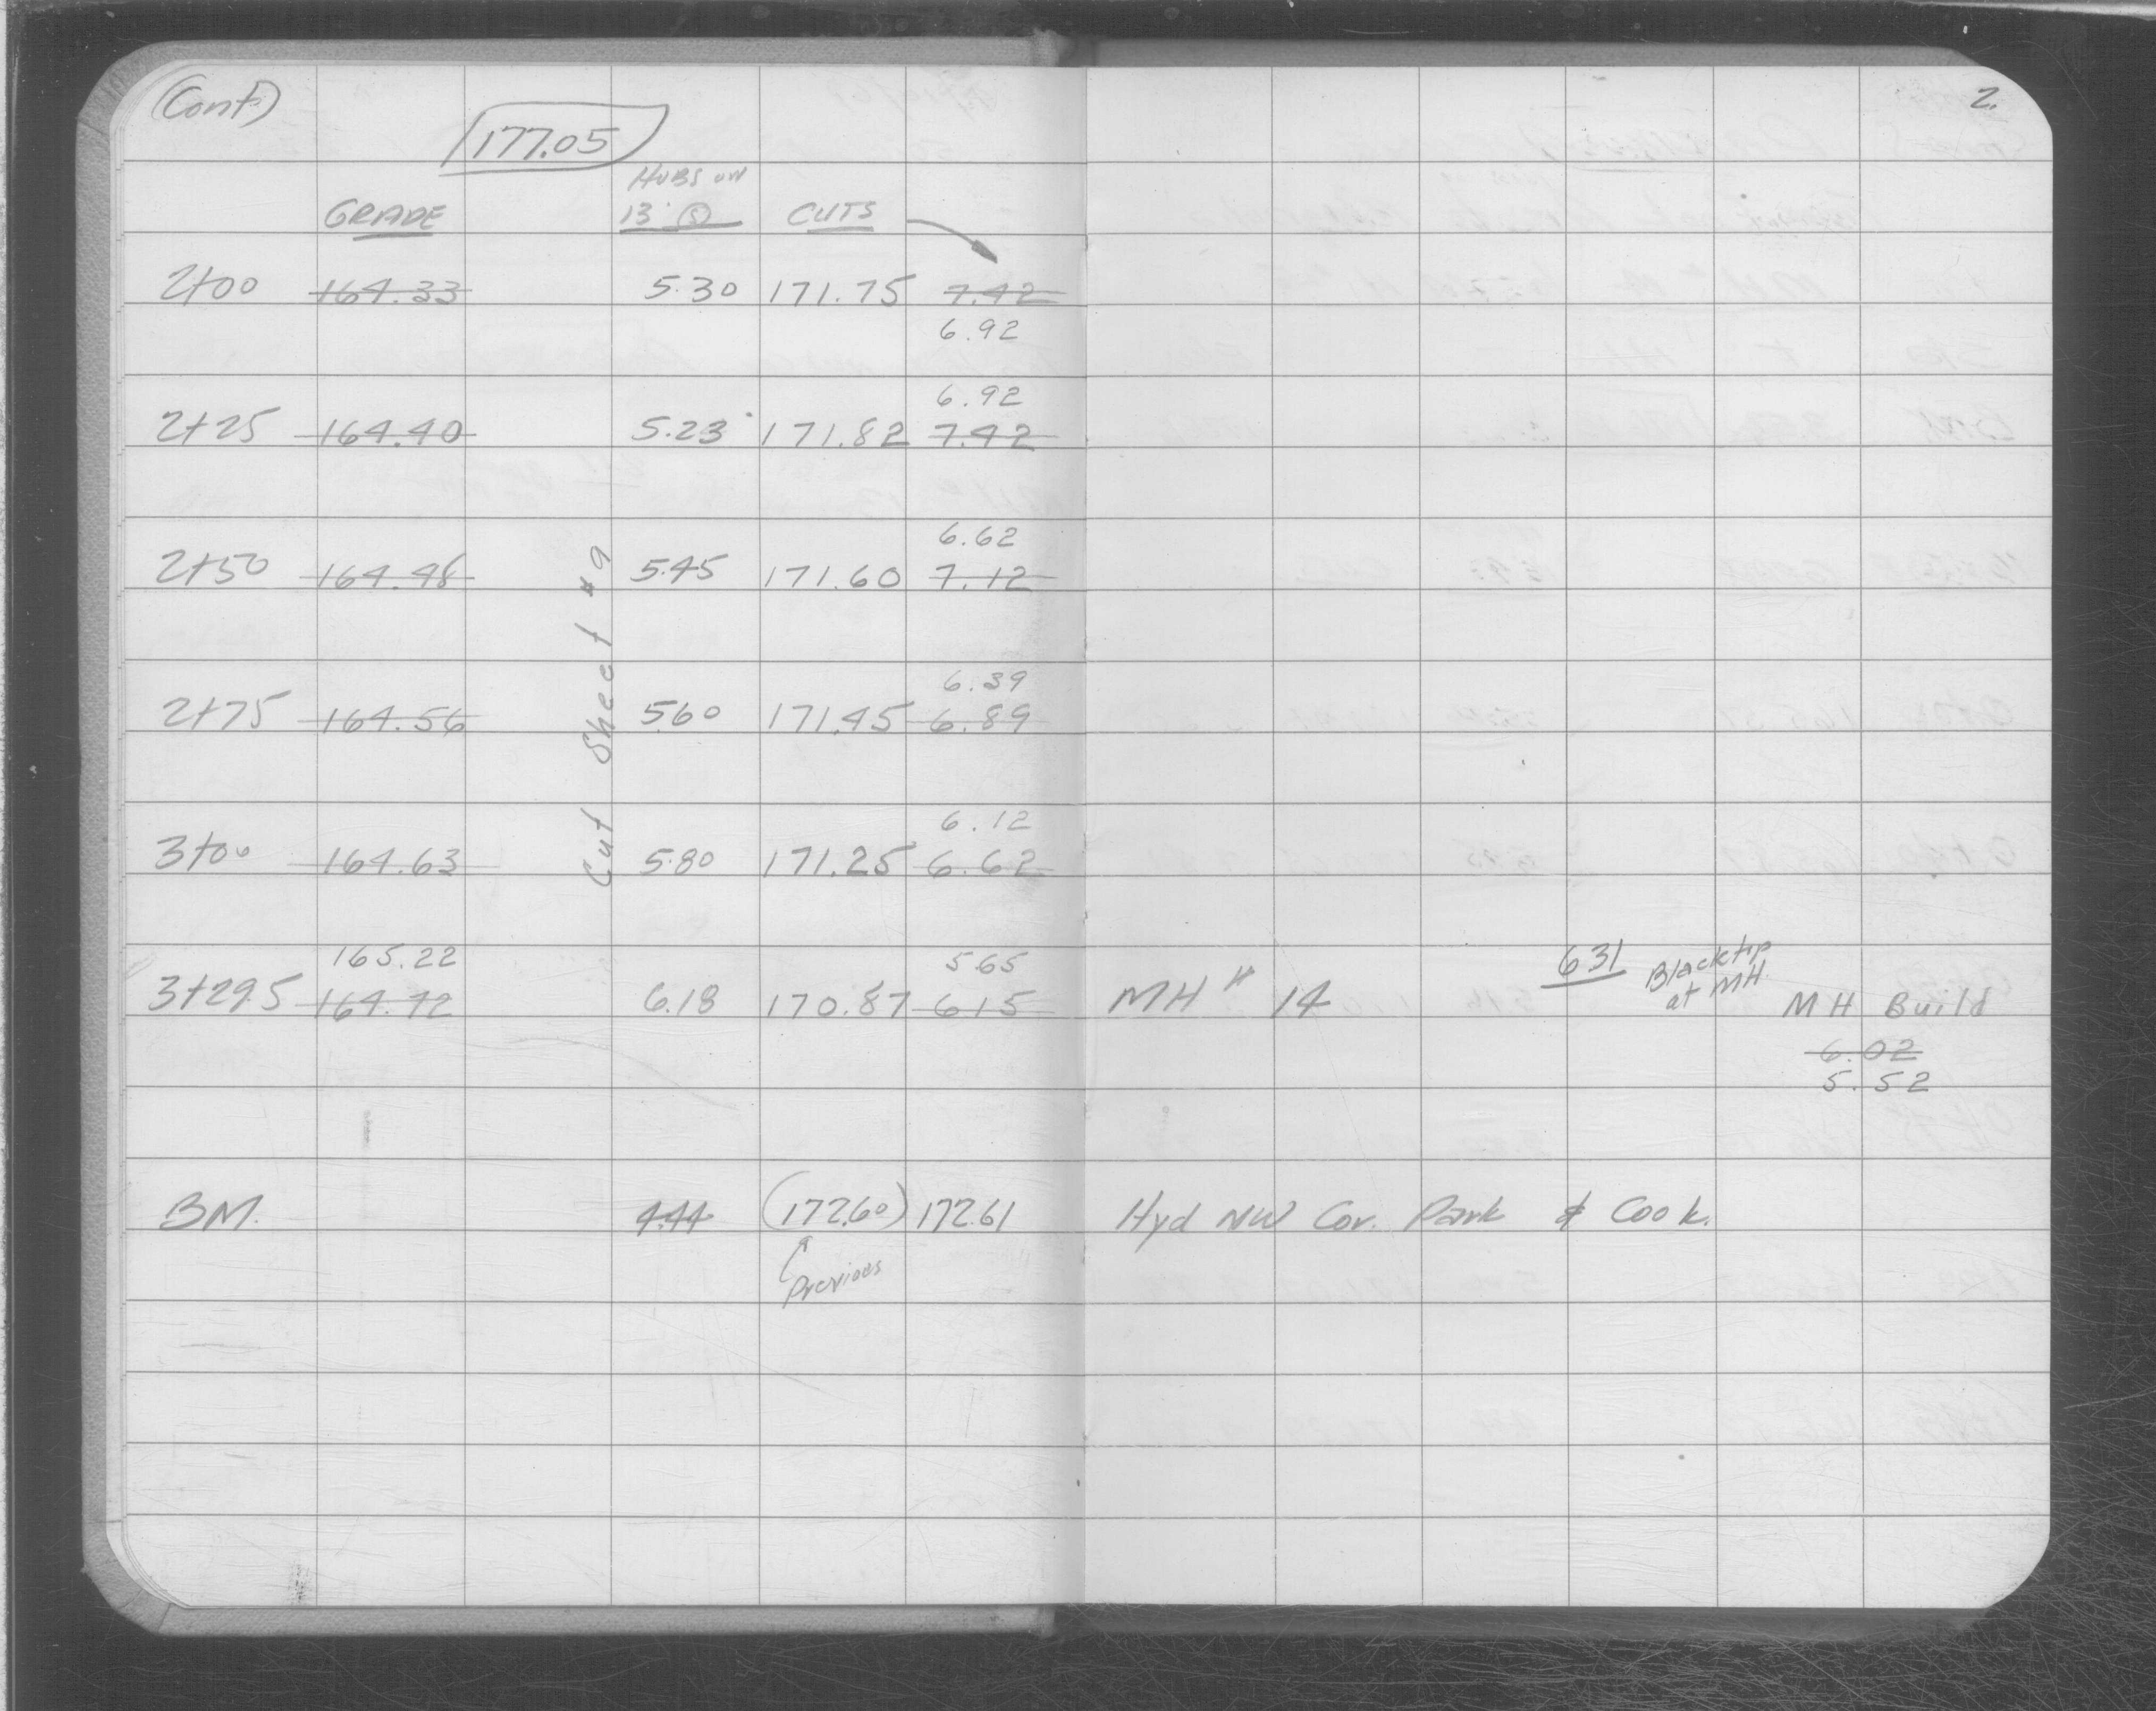 (Cont)
2.
177.05
HUBS ON
GRADE 13' Ⓢ CUTS
2+00 164.33 5.30 171.75 7.42
6.92
6.92
2+25 164.40 5.23 171.82 7.42
6.62
2+50 164.48 5.45 171.60 7.12
6.39
2+75 164.56 5.60 171.45 6.89
6.12
3+00 164.63 5.80 171.25 6.62
Cut Sheet #9
165.22 5.65 631 Blacktop
3+29.5 164.72 6.18 170.87 6.15 MH # 14 at MH MH Build
6.02
5.52
BM. 4.44 (172.60) 172.61 Hyd NW Cor. Park & Cook.
Previous